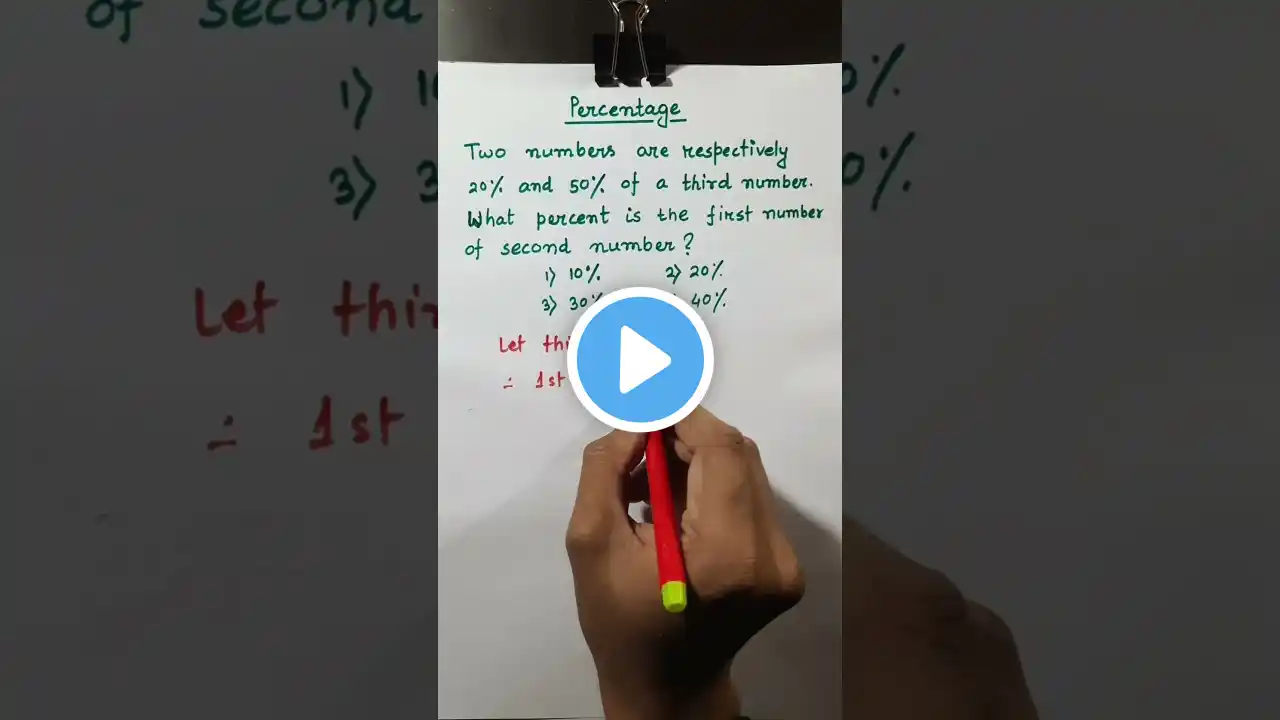 Percentage
Two numbers are respectively
20% and 50% of a third number.
What percent is the first number
of second number?
1) 10% 2) 20%
3) 30% 40%
Let
∴ 1st